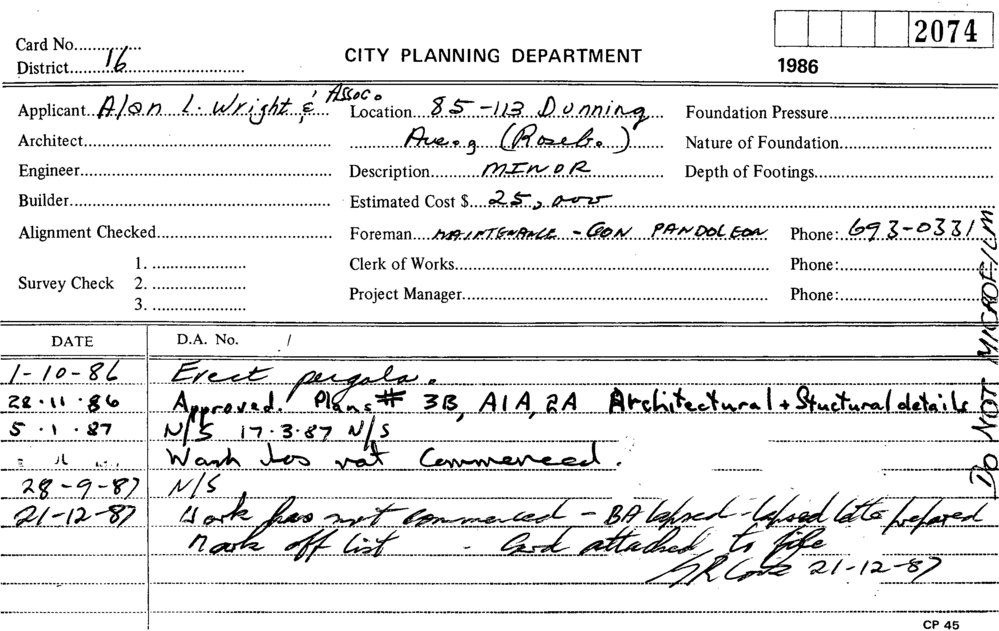 2074
Card No.
District 16
CITY PLANNING DEPARTMENT
1986
Applicant Alan L. Wright & Assoc.
Location 85-113 Dunning
Foundation Pressure
Architect
Ave. (Roseb.)
Nature of Foundation
Engineer
Description MINOR
Depth of Footings
Builder
Estimated Cost $ 25,000
Alignment Checked
Foreman MAINTENANCE - CON PANDOLEON Phone: 693-0331
Survey Check
1.
2.
3.
Clerk of Works Phone:
Project Manager Phone:
DO NOT MICROFILM
DATE D.A. No. /
1-10-86 Erect pergola.
28.11.86 Approved. Plans # 3B, A1A, 2A Architectural + Stuctural details
5.1.87 N/S 17.3.87 N/S
Work has not Commenced.
28-9-87 N/S
21-12-87 Work has not commenced - BA lapsed - lapsed letter prepared
Mark off list - Card attached to file
21-12-87
CP 45